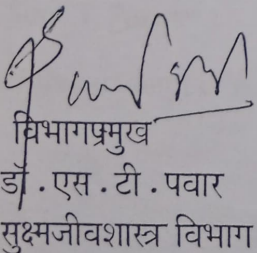 विभागप्रमुख
डॉ . एस . टी . पवार
सुक्ष्मजीवशास्त्र विभाग